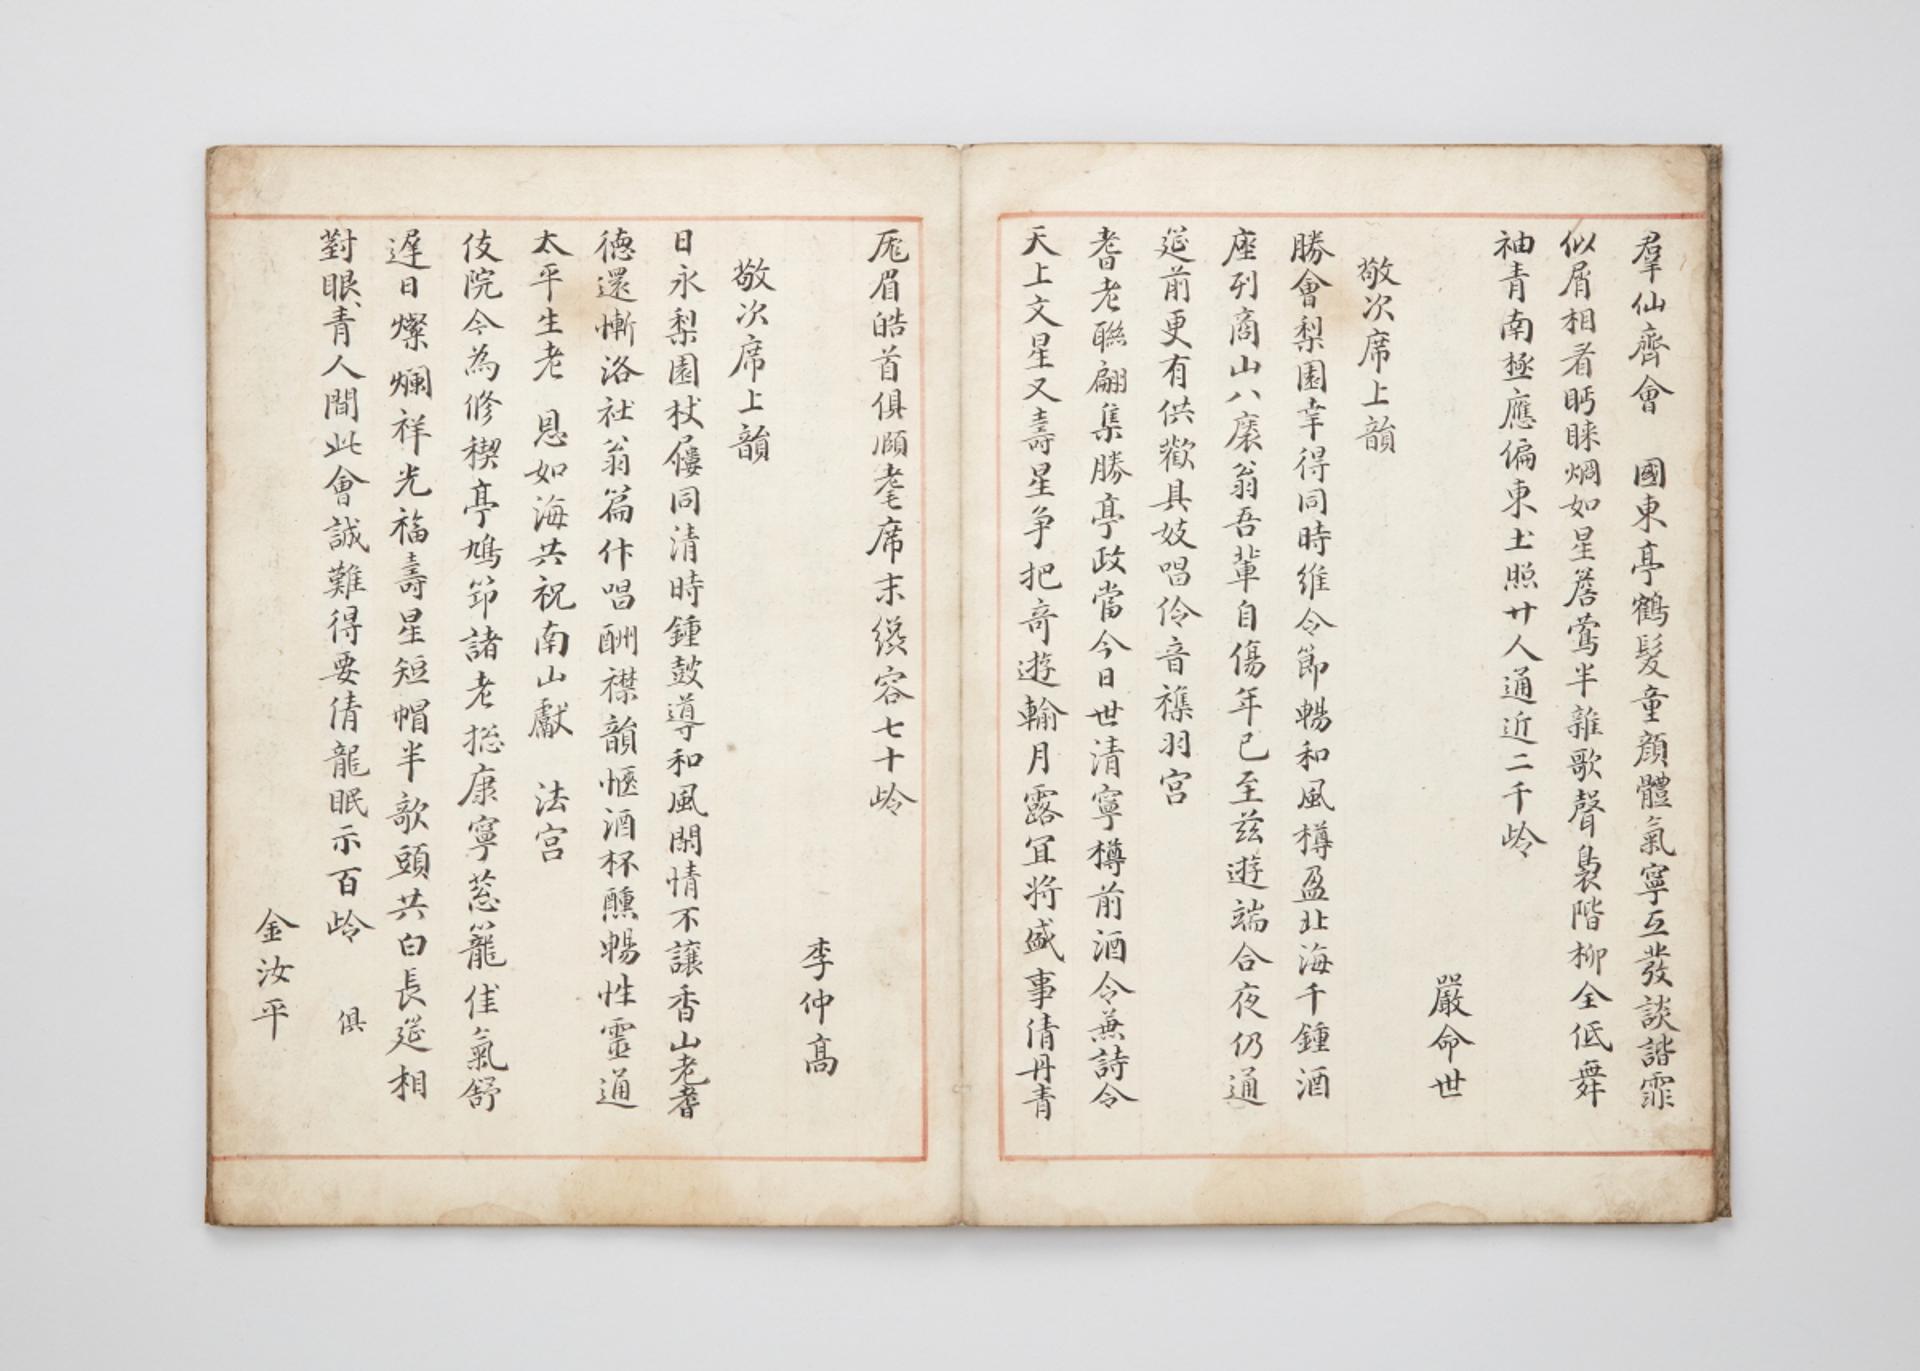 羣仙齊會 國東亭鶴髮童顔體氣寧互發談諧霏
似屑相看眄睞烱如星簷鶯半雜歌聲裊階柳全低舞
袖青南極應偏東土照廿人通近二千岭
嚴命世
敬次席上韻
勝會梨園幸得同時維令節暢和風樽盈北海千鍾酒
座列商山八袠翁吾輩自傷年已至玆遊端合夜仍通
筵前更有供歡具妓唱伶音襍羽宮
耆老聮翩集勝亭政當今日世清寧樽前酒令兼詩令
天上文星又壽星争把奇遊輸月露冝將盛事倩丹青
厖眉皓首俱頤耄席末緩容七十岭
李仲高
敬次席上韻
日永梨園杖屨同清時鍾鼓導和風閑情不讓香山老耆
德還慚洛社翁篇什唱酬襟韻愜酒杯醺暢性靈通
太平生老 恩如海共祝南山獻 法宮
伎院今為修稧亭鳩笻諸老摠康寧葱籠佳氣舒
遲日燦爛祥光福壽星短帽半欹頭共白長筵相
對眼青人間此會誠難得要倩龍眠示百岭 俱
金汝平